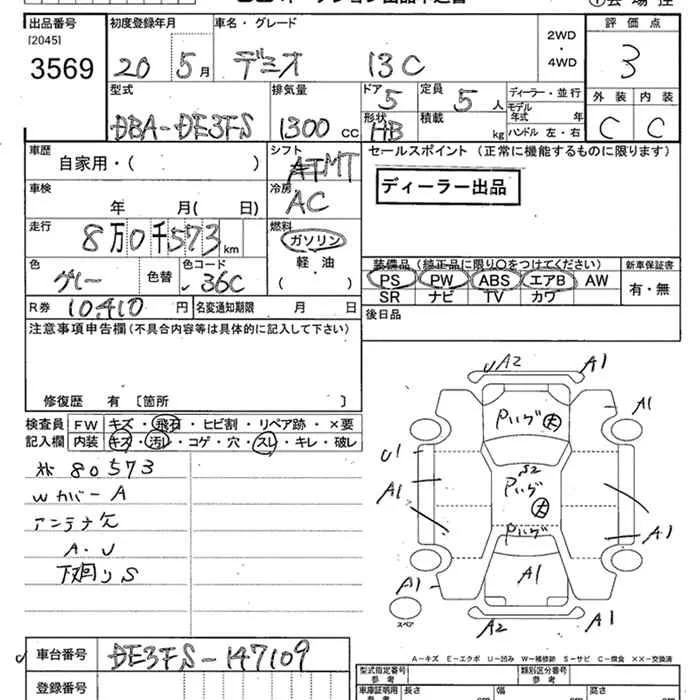 出品番号 初度登録年月 車名・グレード 評価点
[2045]
3569 20 5月 デミオ 13C 2WD・4WD 3
型式 排気量 ドア 5 定員 5人 ディーラー・並行 外装 内装
モデル年式 年
DBA-DE3FS 1300cc 形状 HB 積載 kg ハンドル 左・右 C C
車歴 シフト セールスポイント (正常に機能するものに限ります)
自家用・( ) MT
車検 冷房 ディーラー出品
年 月( 日) AC
走行 燃料
8万0千573km ガソリン
軽・油
( )
装備品 (純正品に限り○をつけてください) 新車保証書
色 色替 色コード PS PW ABS エアB AW 有・無
グレー 36C SR ナビ TV カワ
R券 10410円 名変通知期限 月 日 後日品
注意事項申告欄 (不具合内容等は具体的に記入して下さい)
修復歴 有 〔箇所 〕
検査員 FW キズ・飛石・ヒビ割・リペア跡・×要
記入欄 内装 キズ・汚レ・コゲ・穴・スレ・キレ・破レ
80573
Wカバー A
アンテナ欠
A・U
下廻りS
UA2 A1
A1
Pいげ 大
U1
S2
A1
Pいげ 大
A1
Pいげ
A1
A1
スペア
A2 A1
A-キズ E-エクボ U-凹み W-補修跡 S-サビ C-腐食 XX-交換済
車台番号 DE3FS-147109 型式指定番号 参考 類別区分番号 参考
登録番号 車庫証明用 参考 長さ cm 幅 cm 高さ cm